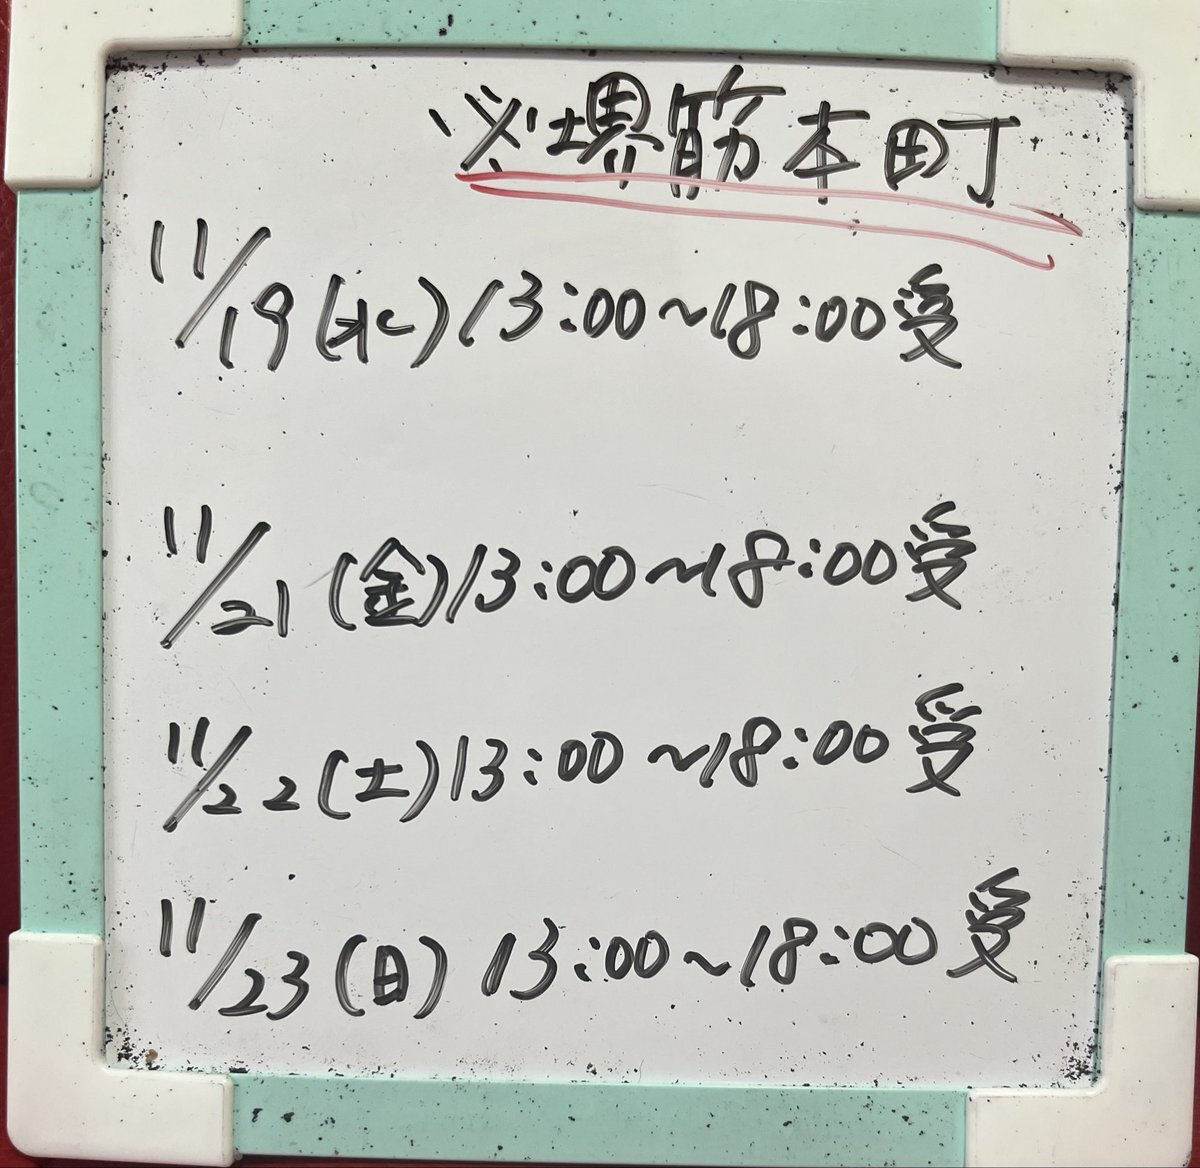 ※堺筋本町
11/19(水)13:00~18:00受
11/21(金)13:00~18:00受
11/22(土)13:00~18:00受
11/23(日)13:00~18:00受